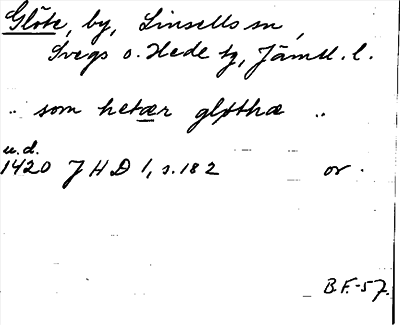 Glöte, by, Linsells sn,
Svegs o. Hede tg, Jämtl. l.
.. som hetær gløthæ ..
u.d.
1420 JHD 1, s. 182 or.
B.F.-57.